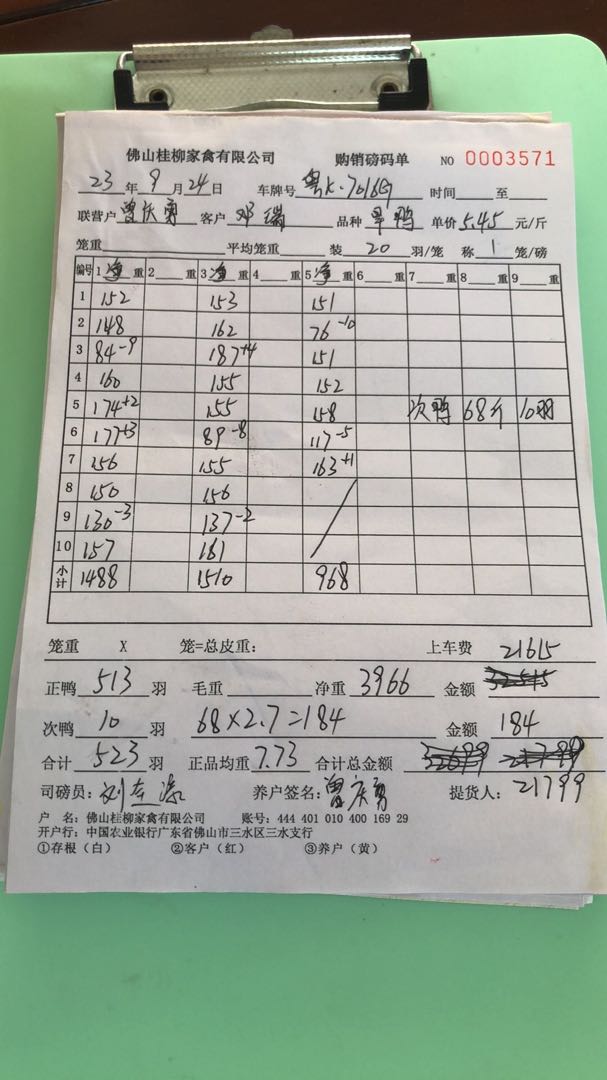 佛山桂柳家禽有限公司 购销磅码单 NO 0003571
23 年 9 月 24 日 车牌号 粤K·7016G 时间 至
联营户 曾庆勇 客户 邓瑞 品种 旱鸭 单价 5.45 元/斤
笼重 平均笼重 装 20 羽/笼 称 1 笼/磅
编号 1 净 重 2 重 3 净 重 4 重 5 净 重 6 重 7 重 8 重 9 重
1 152 153 151
2 148 162 76-10
3 84-9 187+4 151
4 160 155 152
5 174+2 155 158 次鸭 68斤 10羽
6 177+3 89-8 117-5
7 156 155 163+1
8 150 156
9 130-3 137-2
10 157 161
小计 1488 1510 968
笼重 X 笼=总皮重: 上车费 21615
正鸭 513 羽 毛重 净重 3966 金额
次鸭 10 羽 68×2.7=184 金额 184
合计 523 羽 正品均重 7.73 合计总金额
司磅员: 刘 养户签名: 曾庆勇 提货人: 21799
户 名: 佛山桂柳家禽有限公司 账号: 444 401 010 400 169 29
开户行: 中国农业银行广东省佛山市三水区三水支行
①存根（白） ②客户（红） ③养户（黄）